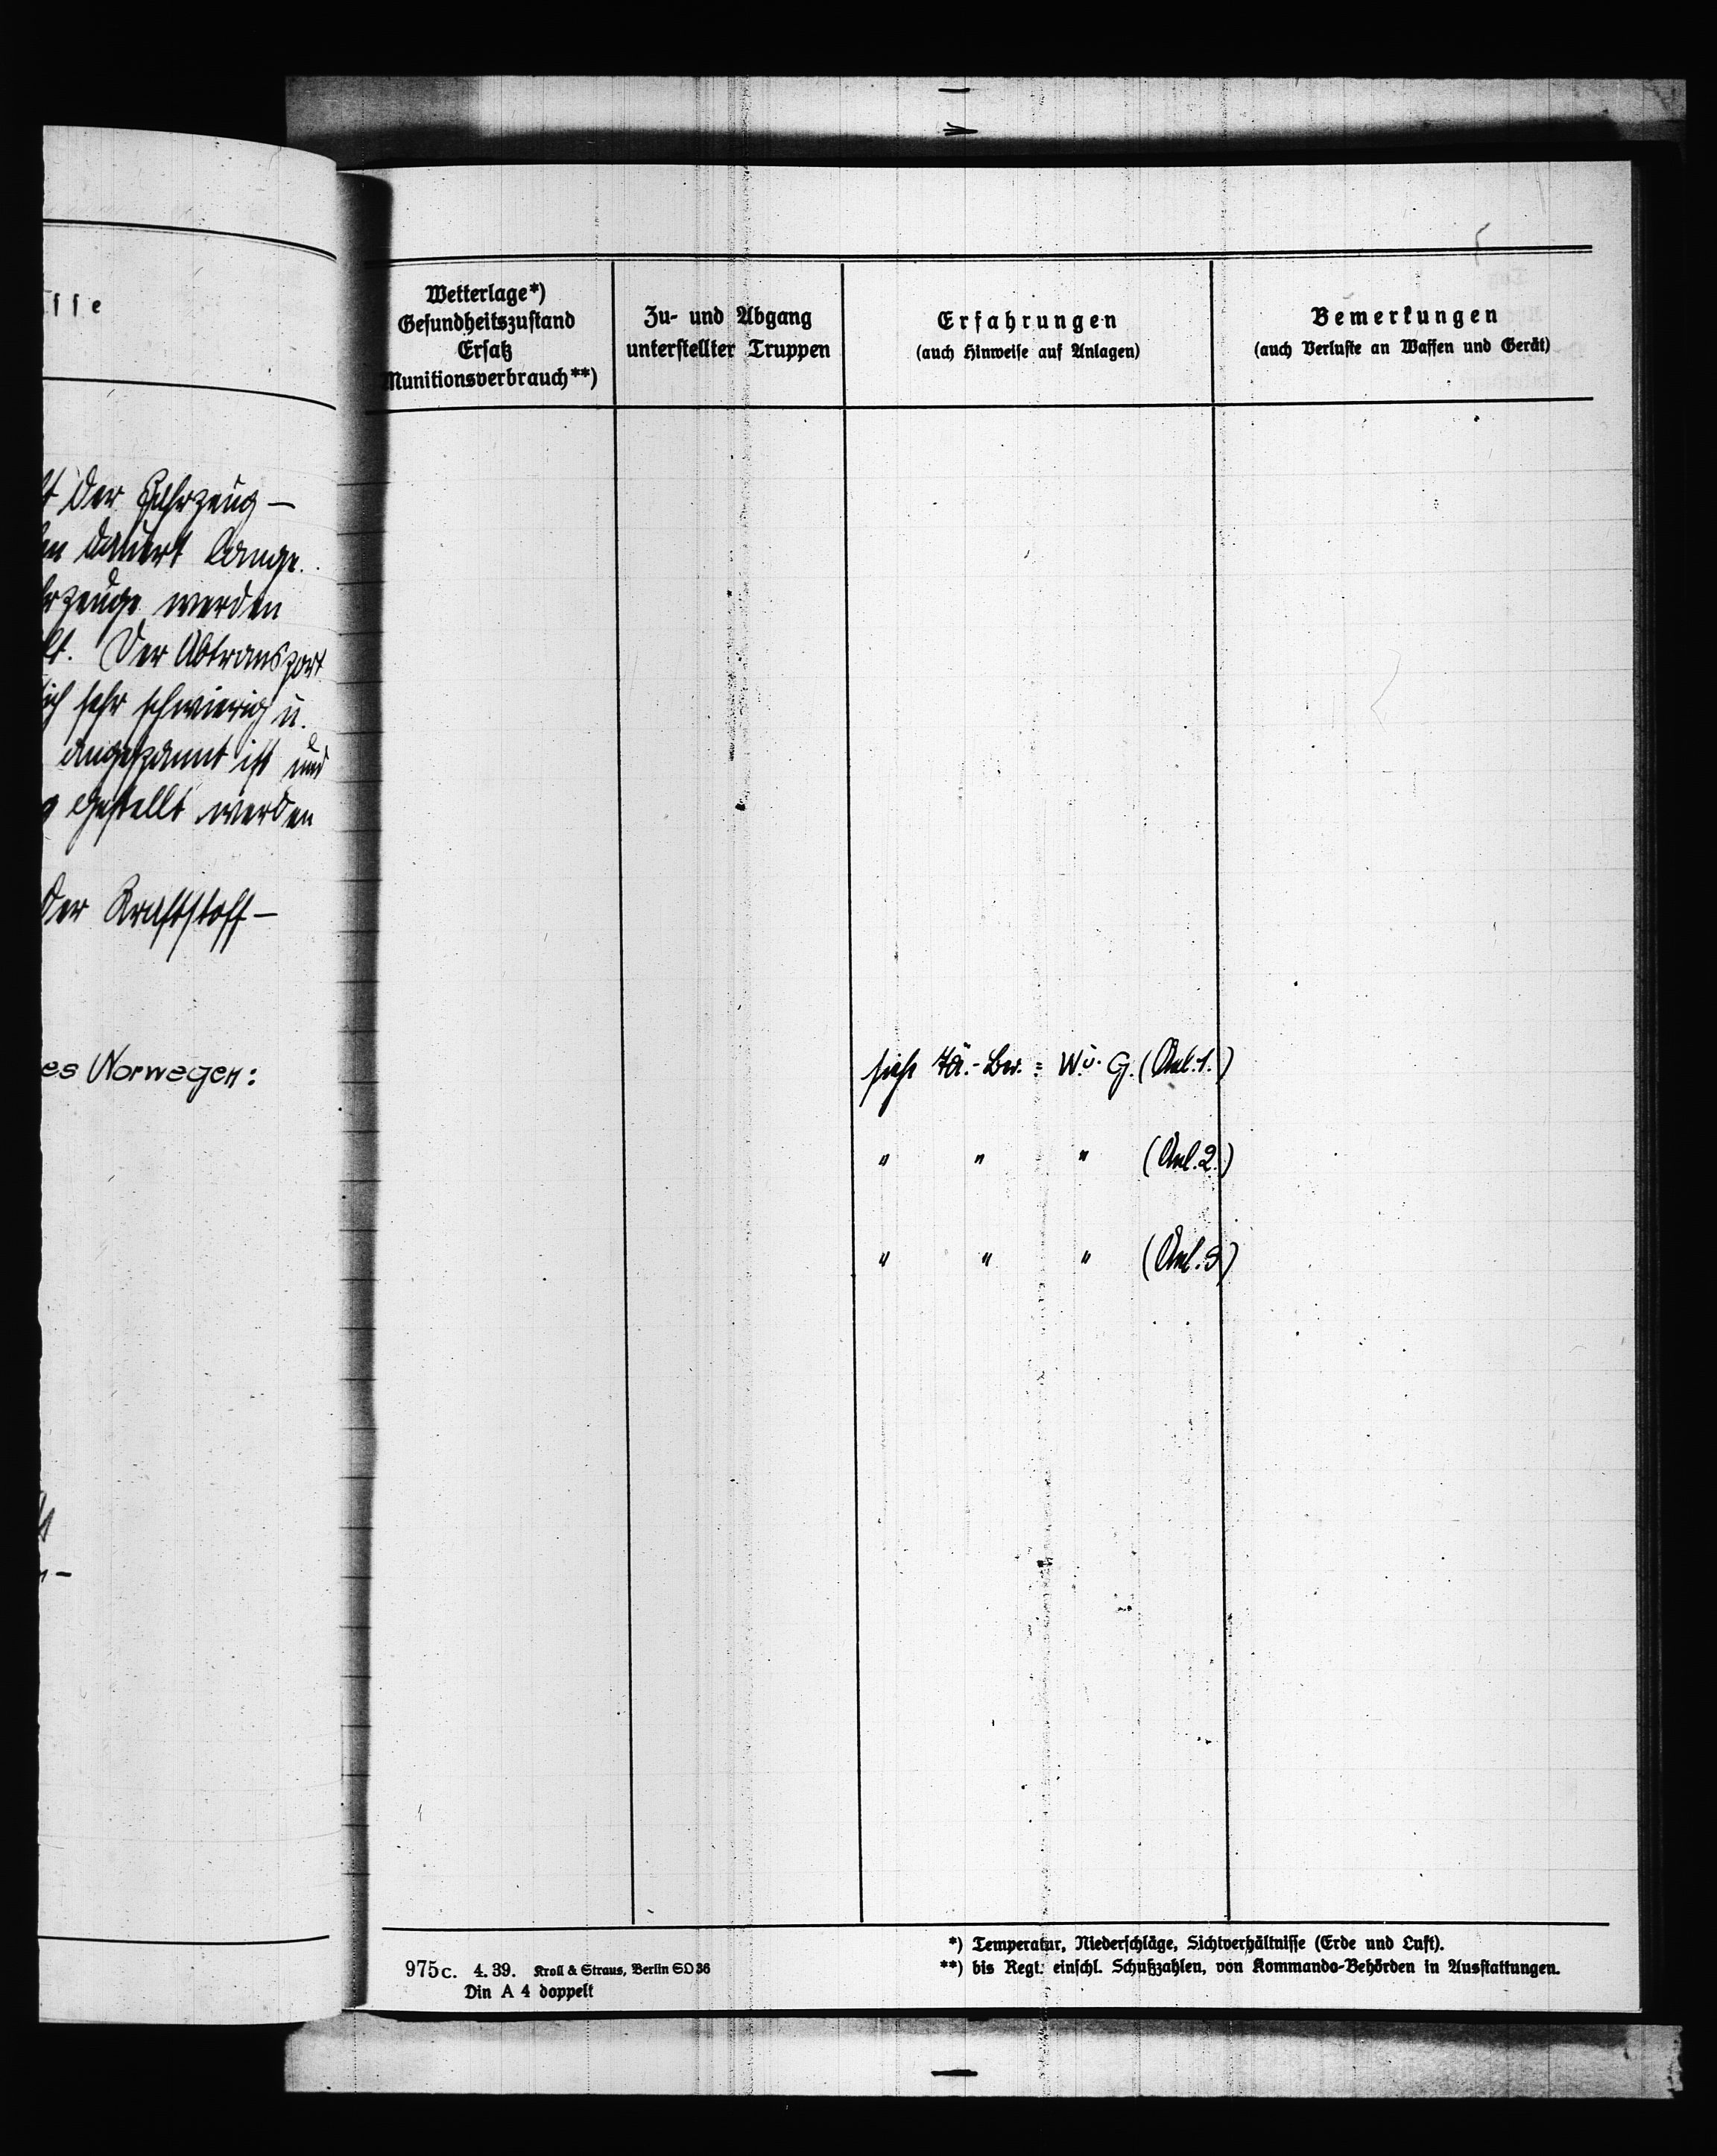 sse
der Fahrzeug–
dauert lange.
werden
Der Abtransport
sehr schwierig u.
angespannt ist und
gestellt werden
der Kraftstoff–
es Norwegen:
Wetterlage*)
Gesundheitszustand
Ersatz
Munitionsverbrauch**)
Zu- und Abgang
unterstellter Truppen
Erfahrungen
(auch Hinweise auf Anlagen)
Bemerkungen
(auch Verluste an Waffen und Gerät)
siehe Tä.-Ber. : W. u. G. (Anl. 1.)
" " " (Anl. 2.)
" " " (Anl. 3)
*) Temperatur, Niederschläge, Sichtverhältnisse (Erde und Luft).
**) bis Regt. einschl. Schußzahlen, von Kommando-Behörden in Ausstattungen.
975c. 4. 39. Kroll & Straus, Berlin SO 36
Din A 4 doppelt